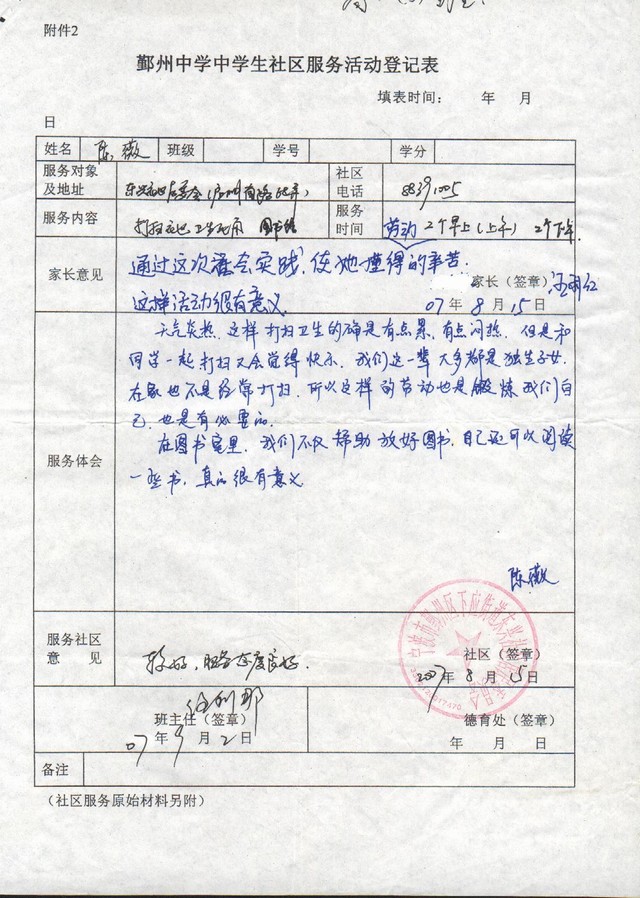 附件2
鄞州中学中学生社区服务活动登记表
填表时间： 年 月
日
姓名 陈薇 班级 学号 学分
服务对象及地址
社区电话 88391005
服务内容 打扫 卫生死角 图书馆
服务时间 劳动 2个早上(上午) 2个下午
家长意见
通过这次社会实践，使她懂得的辛苦.
这样活动很有意义.
家长（签章）
07年8月15日
服务体会
天气炎热，这样打扫卫生的确是有点累，有点闷热，但是和
同学一起打扫又会觉得快乐，我们这一辈大多都是独生子女，
在家也不是经常打扫，所以这样的劳动也是锻炼我们自
己，也是有必要的。
在图书室里，我们不仅帮助放好图书，自己还可以阅读
一些书，真的很有意义.
陈薇
服务社区意见
较好，服务态度良好.
社区（签章）
2007年8月15日
班主任（签章）
07年9月2日
德育处（签章）
年 月 日
备注
（社区服务原始材料另附）